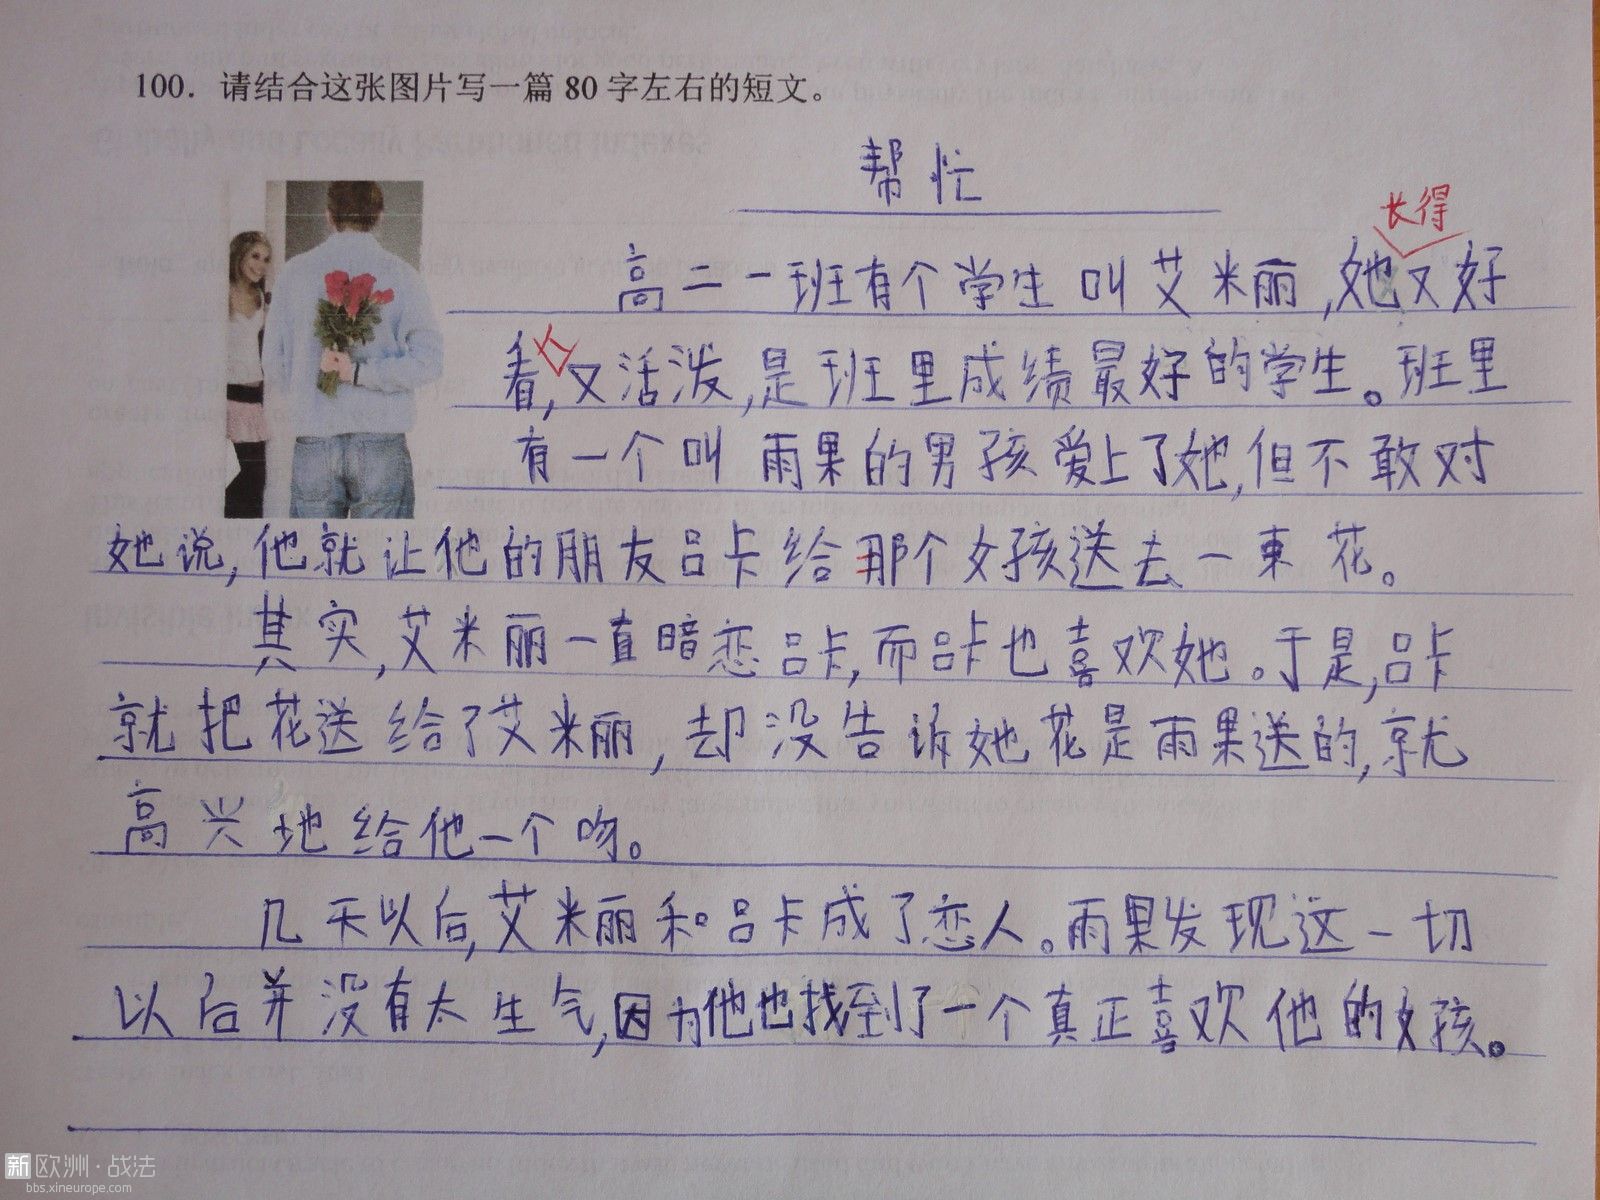 100. 请结合这张图片写一篇 80 字左右的短文。
帮忙
长得
高二一班有个学生叫艾米丽,她又好
看,又活泼,是班里成绩最好的学生。班里
有一个叫雨果的男孩爱上了她,但不敢对
她说,他就让他的朋友吕卡给那个女孩送去一束花。
其实,艾米丽一直暗恋吕卡,而吕卡也喜欢她。于是,吕卡
就把花送给了艾米丽,却没告诉她花是雨果送的,就
高兴地给他一个吻。
几天以后,艾米丽和吕卡成了恋人。雨果发现这一切
以后并没有太生气,因为他也找到了一个真正喜欢他的女孩。
新欧洲·战法
bbs.xineurope.com